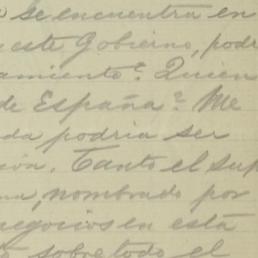 se encuentra en
este Gobierno, podr
amiento? Quien
de España? Me
da podria ser
ión. Tanto el sup
na, nombrado por
negocios en está
sobre todo el